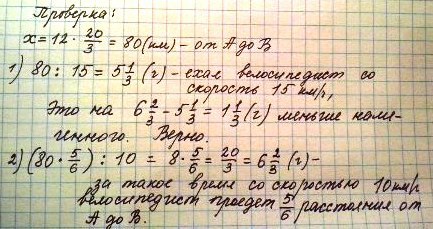 Проверка:
x = 12 · 20/3 = 80 (км) – от А до В
1) 80 : 15 = 5 1/3 (г) – ехал велосипедист со
скорость 15 км/г,
Это на 6 2/3 – 5 1/3 = 1 1/3 (г) меньше наме-
генного. Верно.
2) (80 · 5/6) : 10 = 8 · 5/6 = 20/3 = 6 2/3 (г) –
за такое время со скоростью 10 км/г
велосипедист проедет 5/6 расстояния от
А до В.